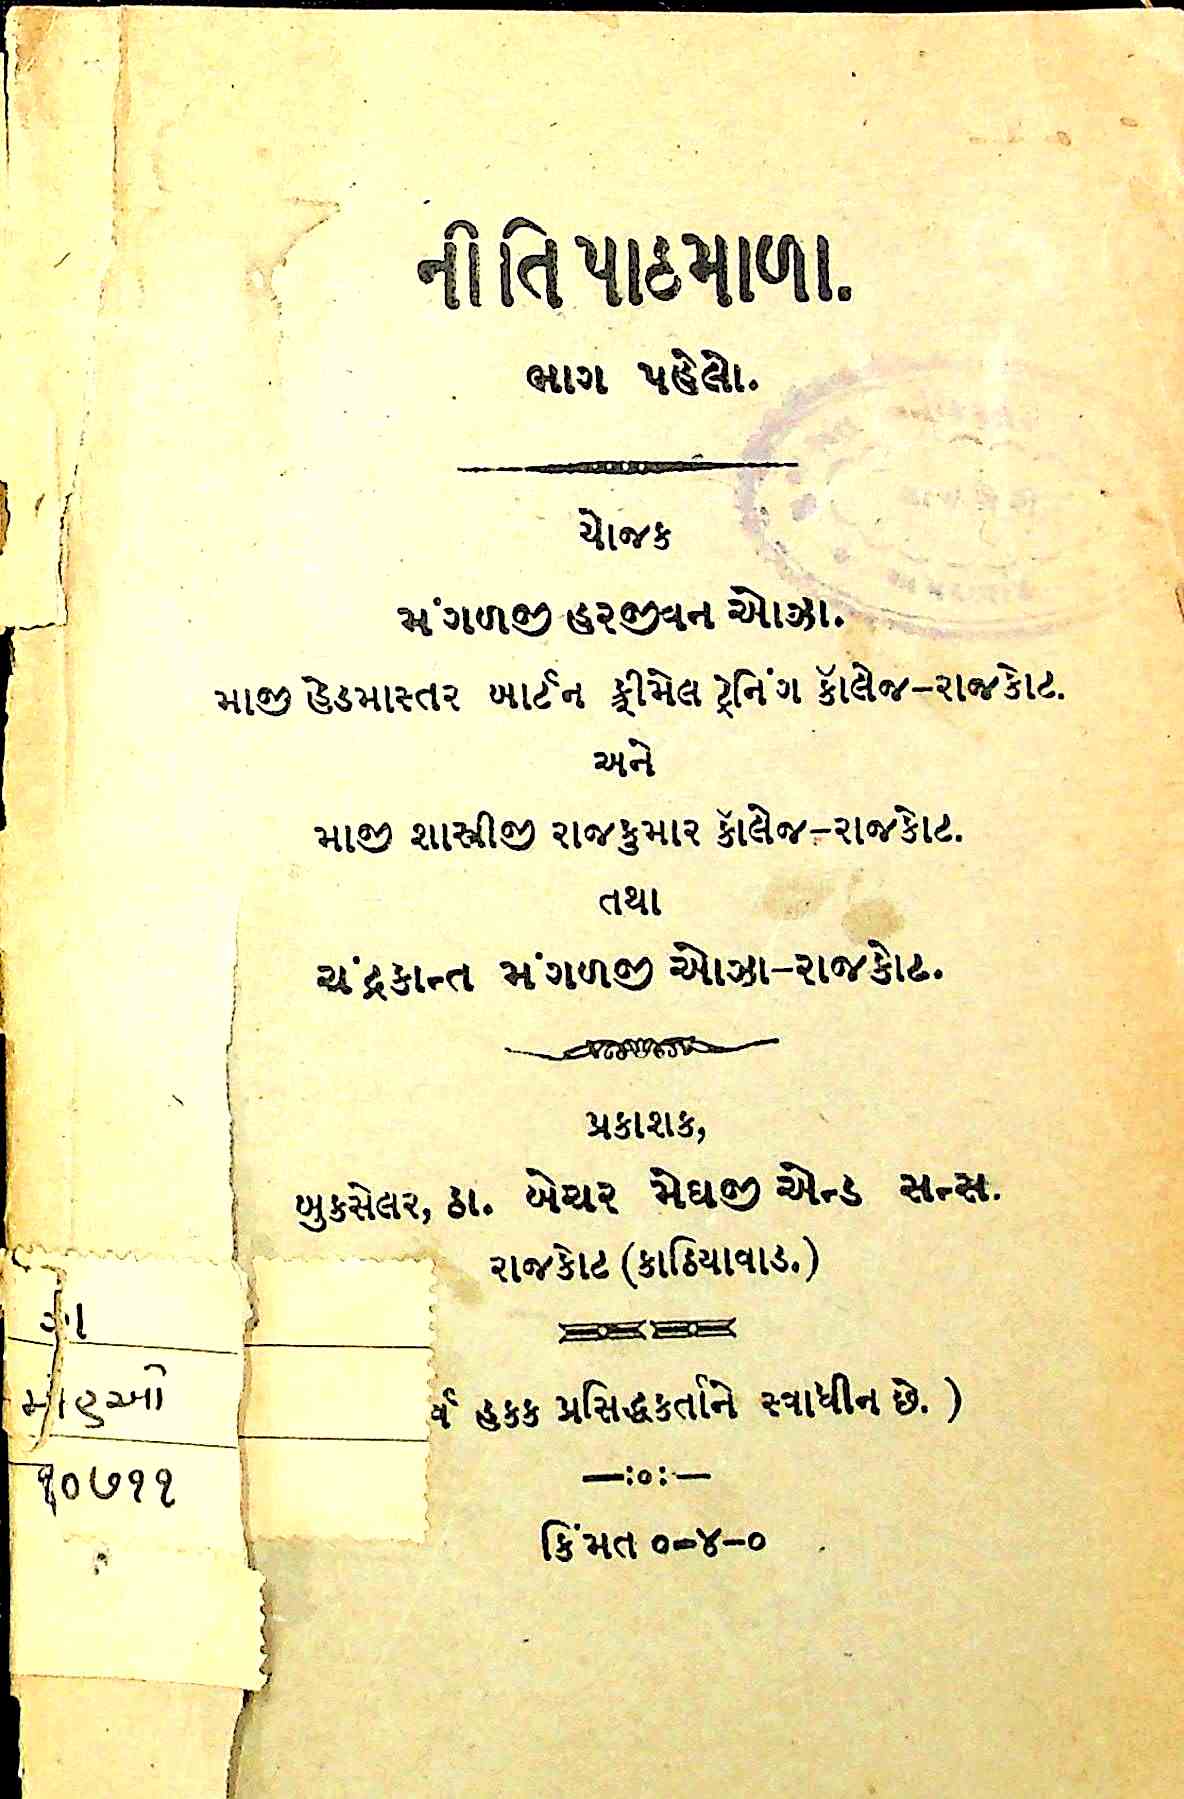 નીતિ પાઠમાળા.
ભાગ પહેલો.
યોજક
મંગળજી હરજીવન ઓઝા.
માજી હેડમાસ્તર બાર્ટન ફીમેલ ટ્રેનિંગ કૉલેજ-રાજકોટ.
અને
માજી શાસ્ત્રીજી રાજકુમાર કૉલેજ-રાજકોટ.
તથા
ચંદ્રકાન્ત મંગળજી ઓઝા-રાજકોટ.
પ્રકાશક,
બુકસેલર, ઠા. બેચર મેઘજી એન્ડ સન્સ.
રાજકોટ (કાઠિયાવાડ.)
હકક પ્રસિદ્ધકર્તાને સ્વાધીન છે. )
—:૦:—
કિંમત ૦-૪-૦
૧૦૭૧૧